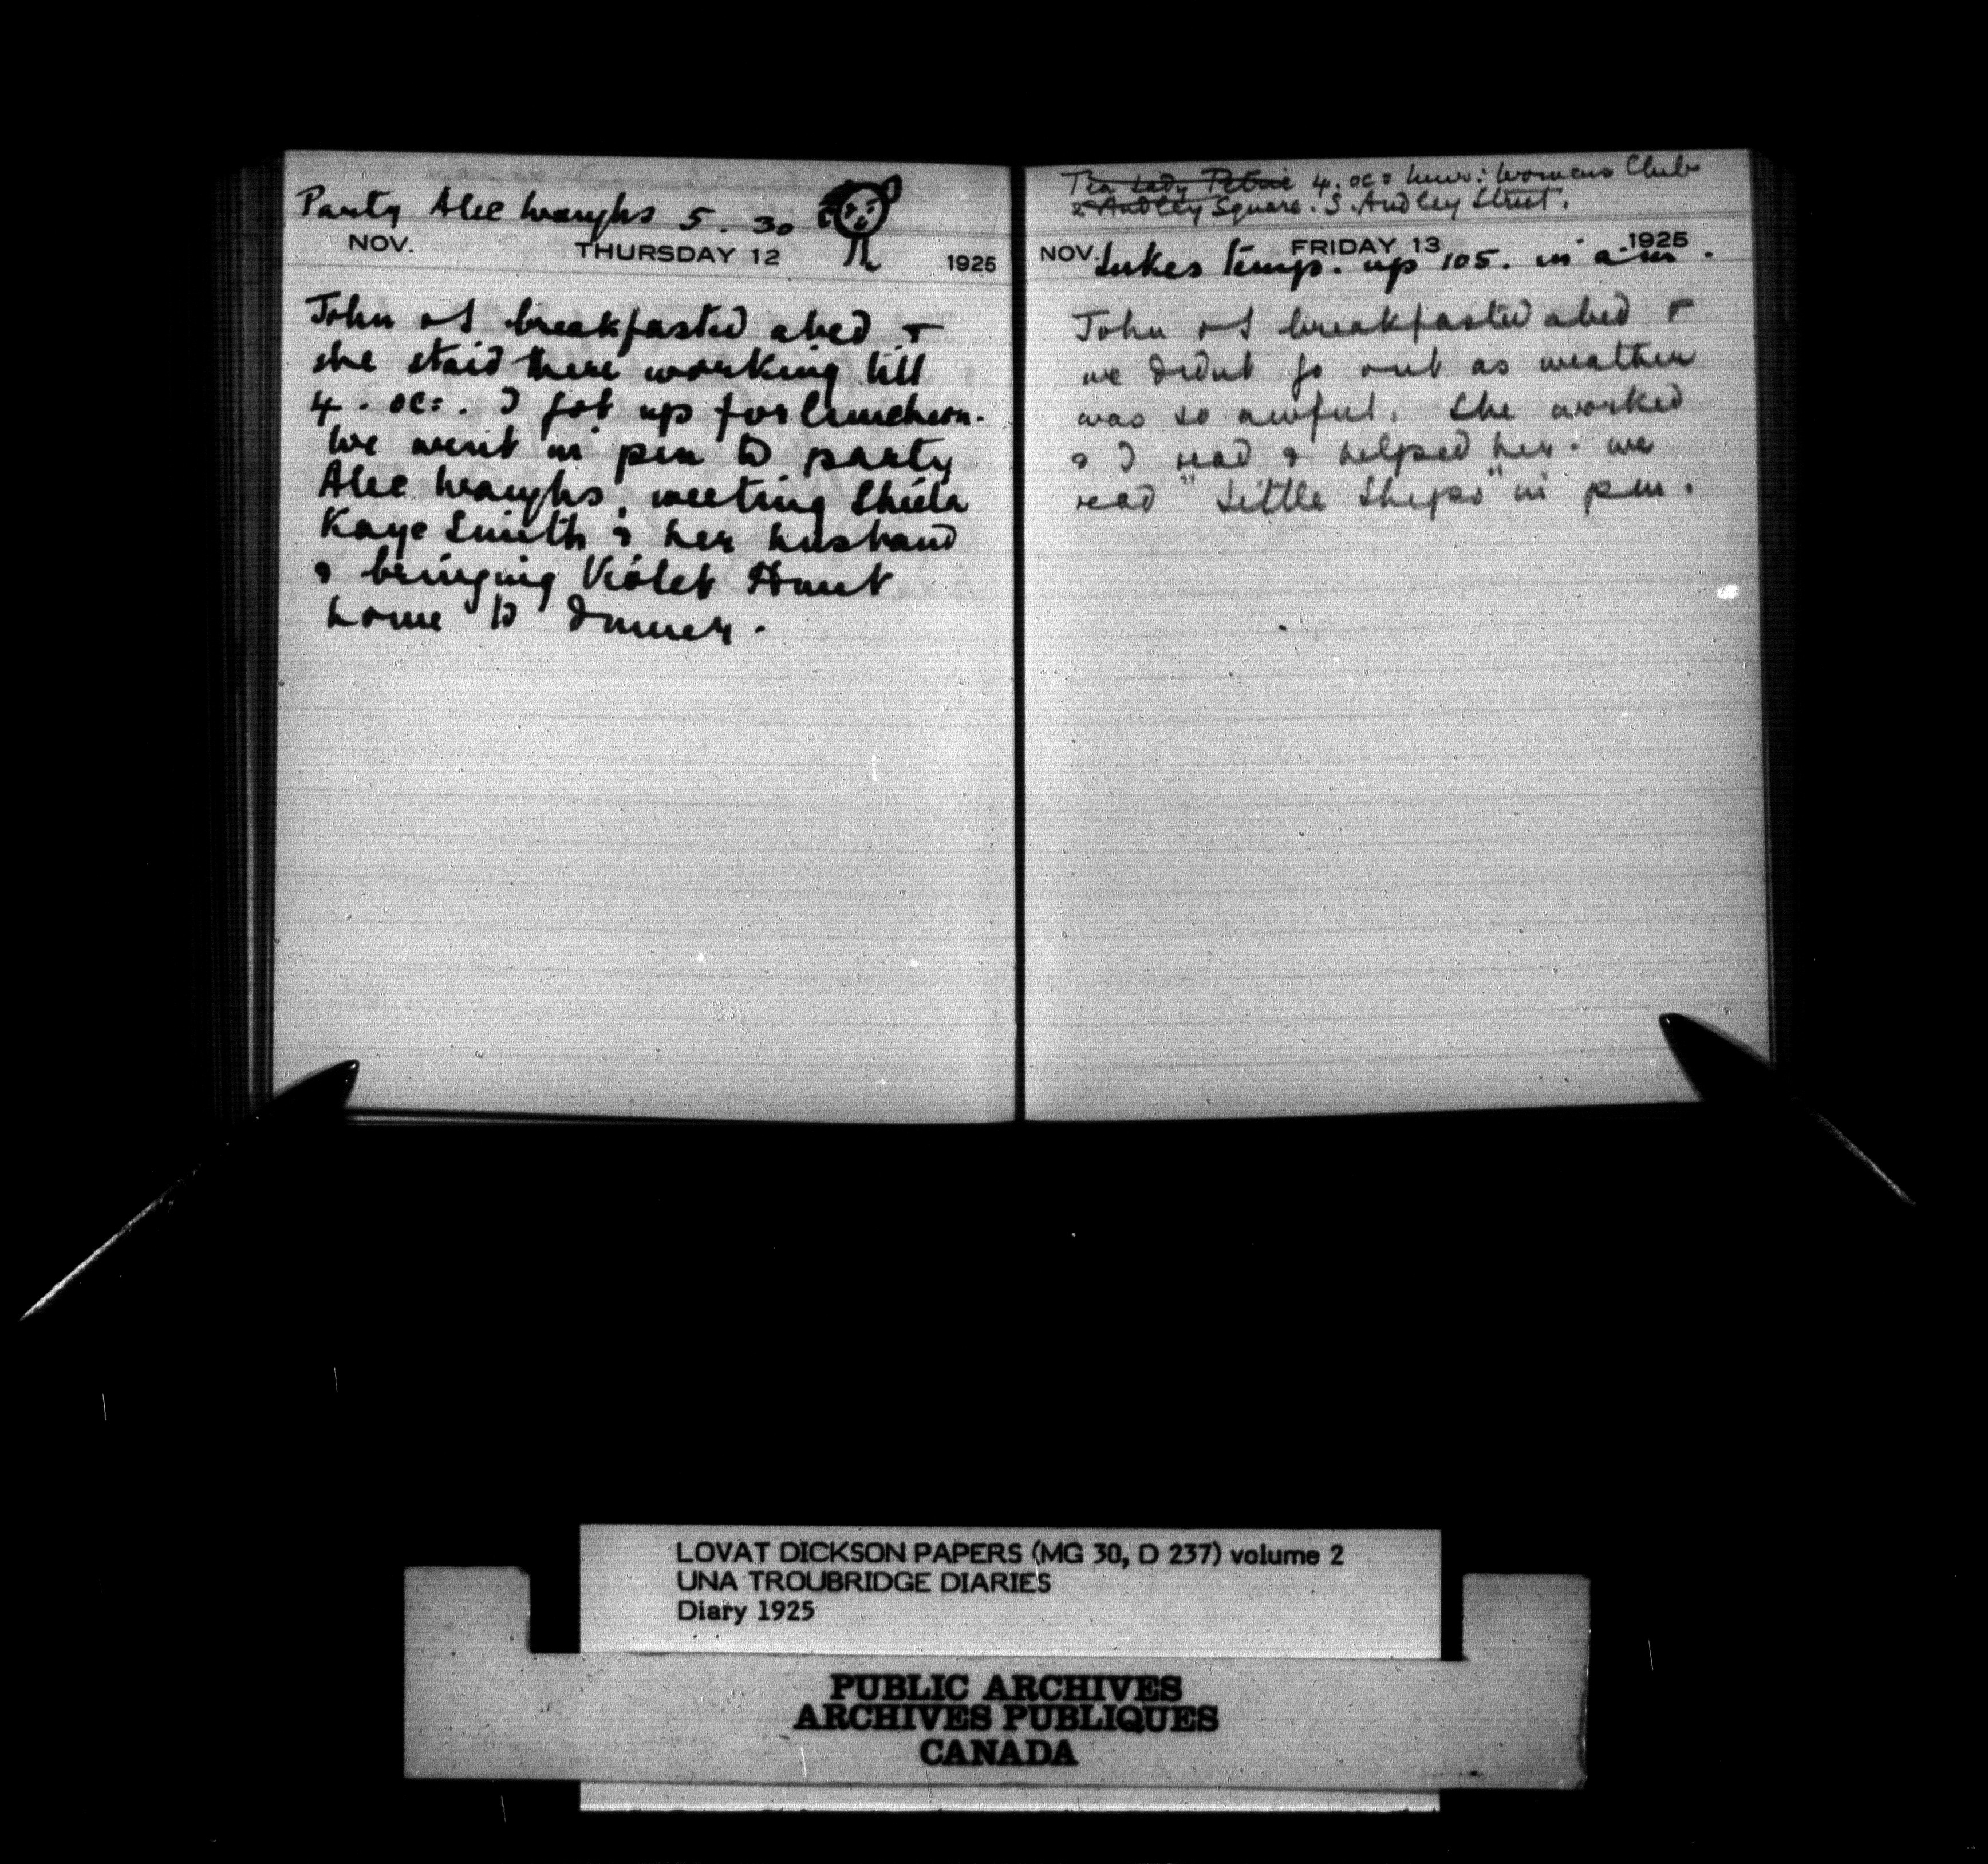 Party Alec Waughs 5.30
NOV. THURSDAY 12 1925
John & I breakfasted abed &
she staid there working till
4. oc: . I got up for luncheon.
We went in pm to party
Alec Waughs, meeting Shiela
Kaye Smith & her husband
& bringing Violet Hunt
home to dinner.
Tea Lady Petrie 4. oc: Univ: Womens Club
2 Audley Square. S. Audley Street.
NOV. FRIDAY 13 1925
Lukes temp. up 105. in a m.
John & I breakfasted abed &
we didnt go out as weather
was so awful. She worked
& I read & helped her. We
read "Little Ships" in pm.
LOVAT DICKSON PAPERS (MG 30, D 237) volume 2
UNA TROUBRIDGE DIARIES
Diary 1925
PUBLIC ARCHIVES
ARCHIVES PUBLIQUES
CANADA